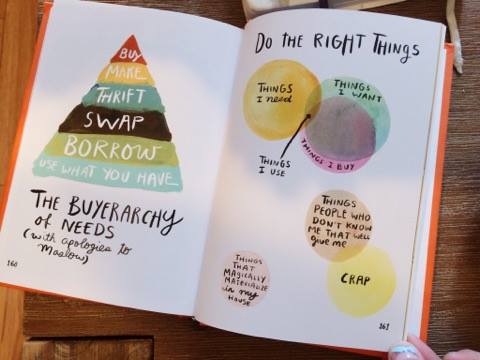 BUY
MAKE
THRIFT
SWAP
BORROW
USE WHAT YOU HAVE
THE BUYERARCHY
of NEEDS
(with apologies to
Maslow)
160
DO THE RIGHT THINGS
THINGS
I need
THINGS
I WANT
THINGS I BUY
THINGS
I USE
THINGS
PEOPLE WHO
DON'T KNOW
ME THAT WELL
give me
THINGS
THAT
MAGICALLY
MATERIALIZE
in my
HOUSE
CRAP
161